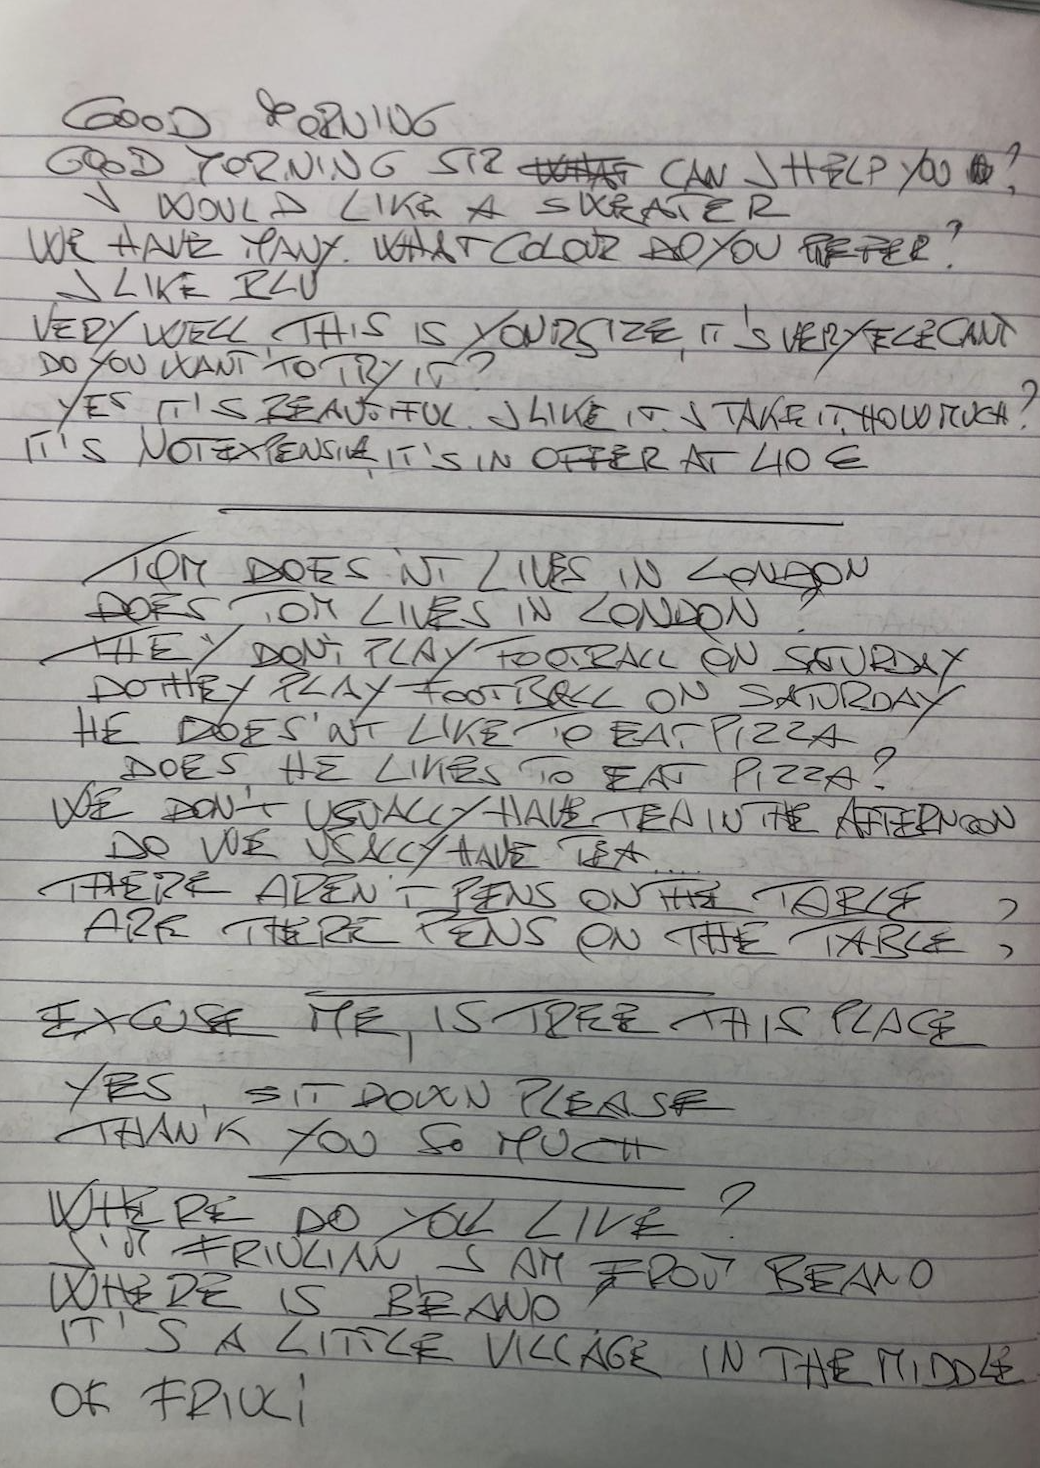 GOOD MORNING
GOOD MORNING SIR WHAT CAN I HELP YOU ?
I WOULD LIKE A SWEATER
WE HAVE MANY. WHAT COLOUR DO YOU PREFER?
I LIKE BLU
VERY WELL THIS IS YOUR SIZE, IT'S VERY ELEGANT
DO YOU WANT TO TRY IT?
YES IT'S BEAUTIFUL. I LIKE IT. I TAKE IT, HOW MUCH?
IT'S NOT EXPENSIVE, IT'S IN OFFER AT 40 €
TOM DOES'NT LIVES IN LONDON
DOES TOM LIVES IN LONDON ?
THEY DON'T PLAY FOOTBALL ON SATURDAY
DO THEY PLAY FOOTBALL ON SATURDAY
HE DOES'NT LIKE TO EAT PIZZA
DOES HE LIKES TO EAT PIZZA?
WE DON'T USUALLY HAVE TEA IN THE AFTERNOON
DO WE USALLY HAVE TEA ....
THERE AREN'T PENS ON THE TABLE
ARE THERE PENS ON THE TABLE ?
EXCUSE ME, IS FREE THIS PLACE
YES, SIT DOWN PLEASE
THANK YOU SO MUCH
WHERE DO YOU LIVE ?
I'M FRIULIAN, I AM FROM BEANO
WHERE IS BEANO ?
IT'S A LITTLE VILLAGE IN THE MIDDLE
OF FRIULI